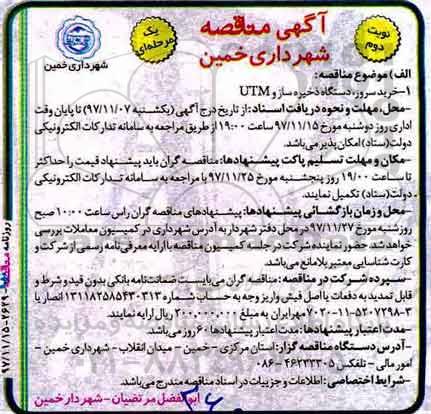 آگهی مناقصه
شهرداری خمین
نوبت
دوم
یک
مرحله‌ای
شهرداری خمین
الف) موضوع مناقصه:
۱-خرید سرور، دستگاه ذخیره ساز و UTM
-محل، مهلت و نحوه دریافت اسناد: از تاریخ درج آگهی (یکشنبه ۹۷/۱۱/۰۷) تا پایان وقت
اداری روز دوشنبه مورخ ۹۷/۱۱/۱۵ ساعت ۱۹:۰۰ از طریق مراجعه به سامانه تدارکات الکترونیکی
دولت(ستاد) امکان پذیر می‌باشد.
-مکان و مهلت تسلیم پاکت پیشنهادها: مناقصه گران باید پیشنهاد قیمت را حداکثر
تا ساعت ۱۹:۰۰ روز پنجشنبه مورخ ۹۷/۱۱/۲۵ با مراجعه به سامانه تدارکات الکترونیکی
دولت(ستاد) تکمیل نمایند.
-محل و زمان بازگشائی پیشنهادها: پیشنهادهای مناقصه گران راس ساعت ۱۰:۰۰ صبح
روز شنبه مورخ ۹۷/۱۱/۲۷ در محل دفتر شهردار به آدرس شهرداری در کمیسیون معاملات بررسی
خواهد شد. حضور نماینده شرکت در جلسه کمیسیون مناقصه با ارایه معرفی‌نامه رسمی از شرکت و
کارت شناسایی معتبر بلامانع می‌باشد.
-سپرده شرکت در مناقصه: مناقصه گران می‌بایست ضمانت‌نامه بانکی بدون قید و شرط و
قابل تمدید به دفعات یا اصل فیش واریز وجه به حساب شماره ۱۳۱۱۸۲۵۸۵۴۳۰۳۱۳ انصار یا
۷۰۳۰-۱۱-۵۳۰۷۲۹۸-۳ مهر ایران به مبلغ ۳۰۰,۰۰۰,۰۰۰ ریال ارایه نمایند.
-مدت اعتبار پیشنهادها: مدت اعتبار پیشنهادها ۶۰ روز می‌باشد.
-آدرس دستگاه مناقصه گزار: استان مرکزی - خمین - میدان انقلاب - شهرداری خمین -
امور مالی - تلفکس ۴۶۲۳۳۳۰۵-۰۸۶
-شرایط اختصاصی: اطلاعات و جزییات در اسناد مناقصه مندرج می‌باشد.
ابوالفضل مرتضیان - شهردار خمین
روزنامه مناقصه ۲۶۲۹-۹۷/۱۱/۱۵